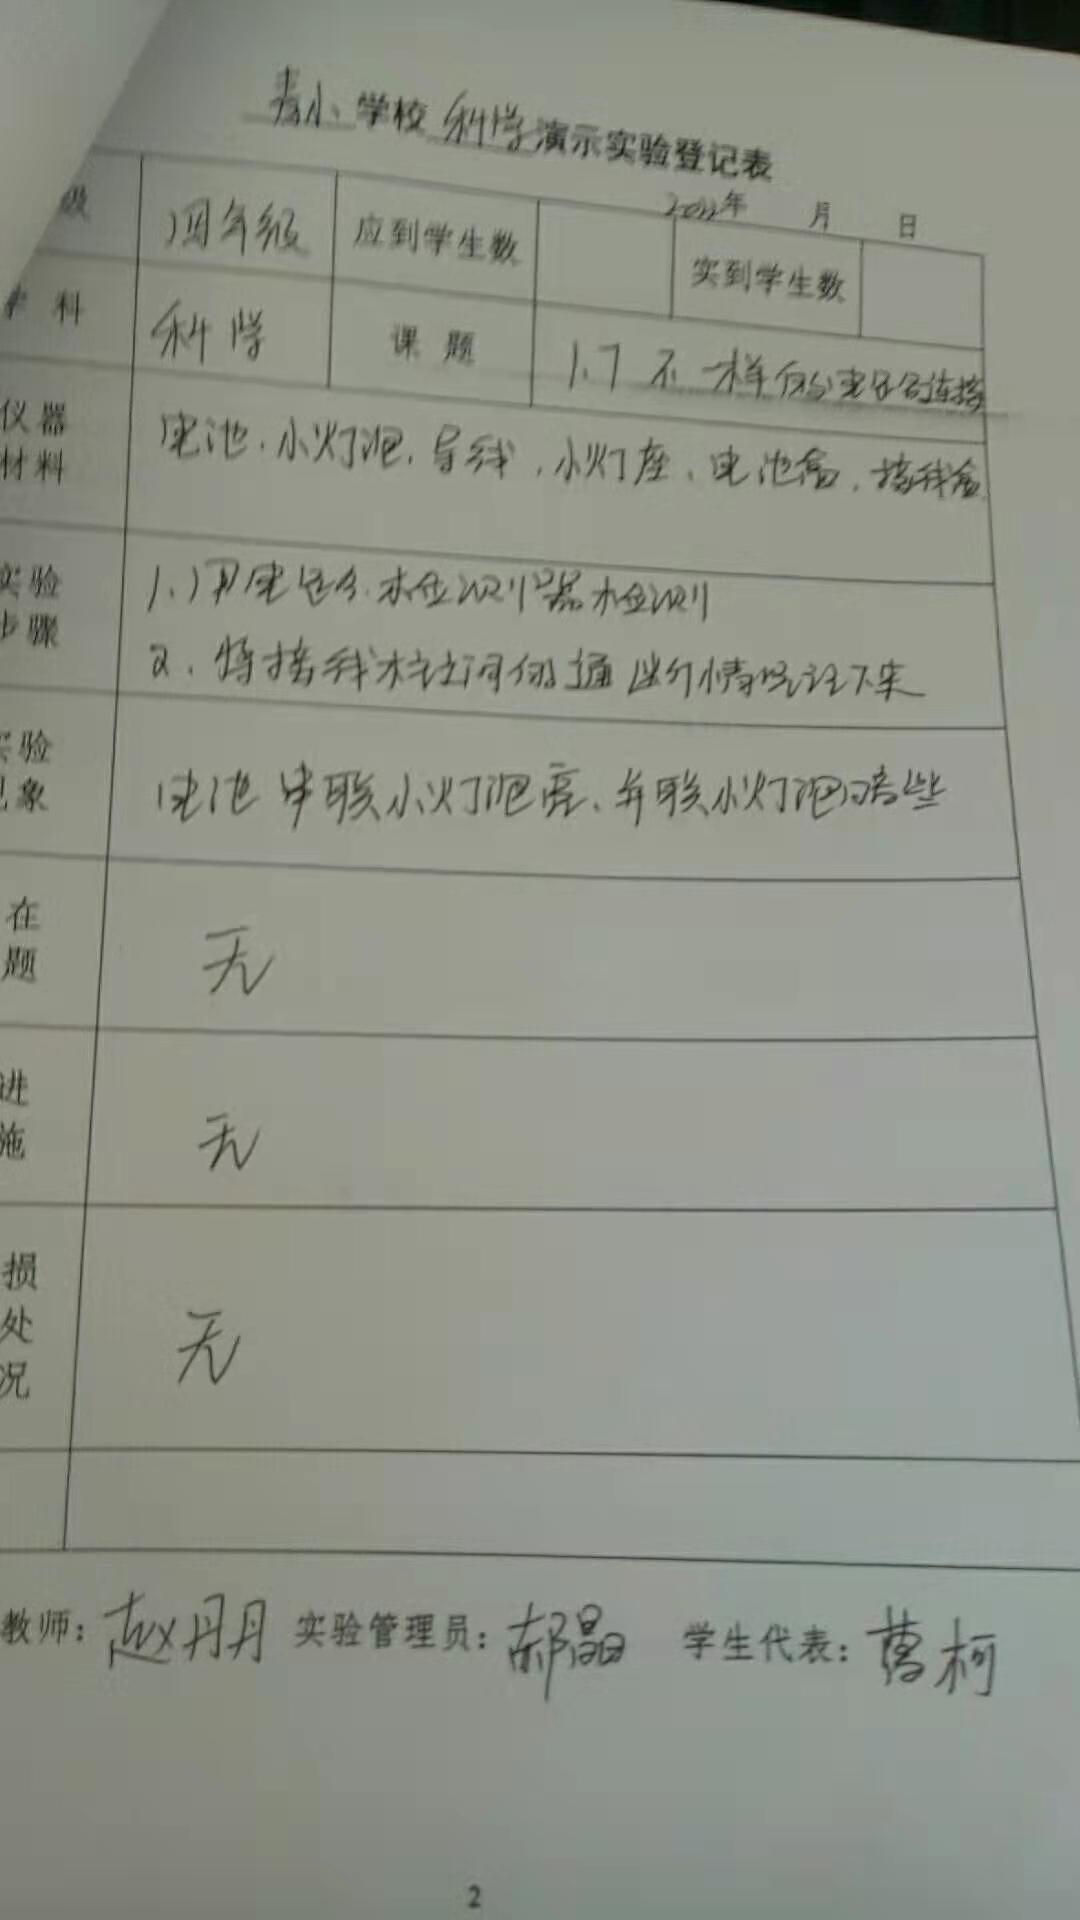 小 学校 科学 演示实验登记表
2022年 月 日
级 四年级 应到学生数 实到学生数
科 科学 课题 1.7 不一样的电路连接
仪器
材料
电池、小灯泡、导线、小灯座、电池盒、接线盒
实验
步骤
1、用电路检测器检测
2、将接线柱之间的通断情况记下来
验
象
电池串联小灯泡亮、并联小灯泡暗些
在
题
无
进
施
无
损
处
况
无
教师: 赵丹丹 实验管理员: 郝晶 学生代表: 柯
2